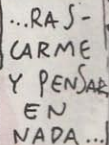 ...RAS-
CARME
Y PENSAR
EN
NADA...